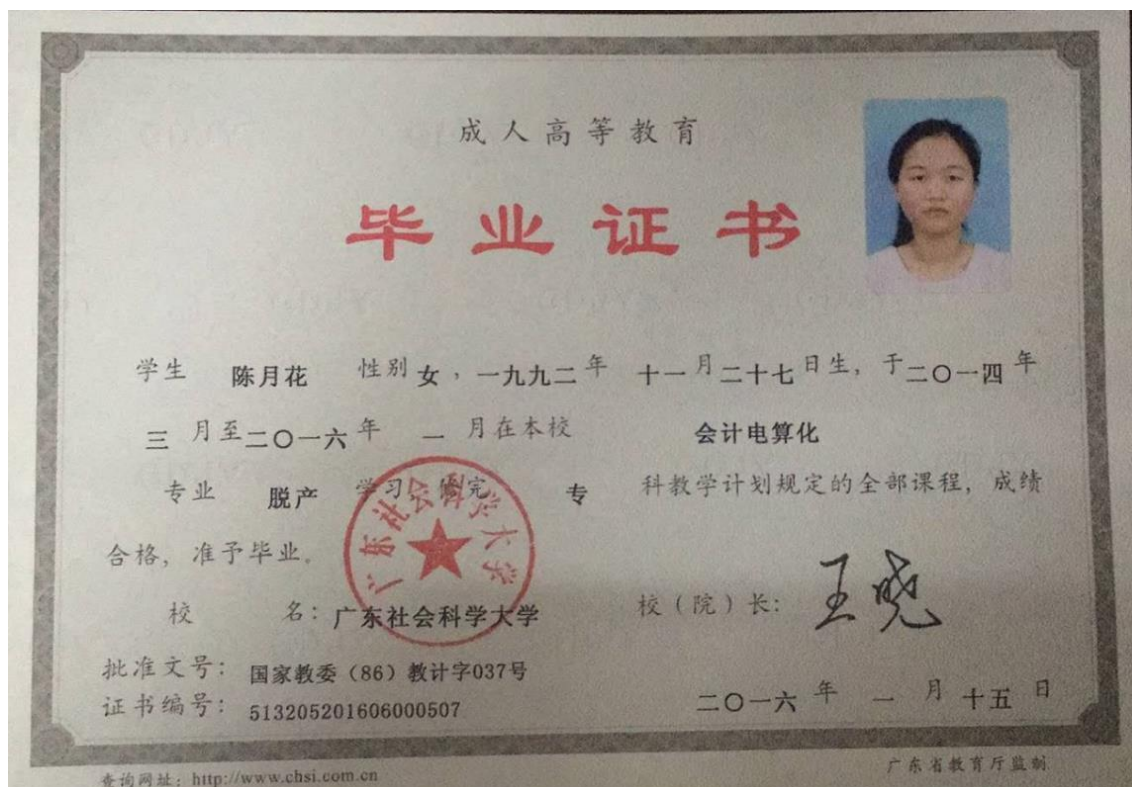 成人高等教育
毕业证书
学生 陈月花 性别 女，一九九二年 十一月二十七日生，于二〇一四年
三 月至二〇一六年 一 月在本校 会计电算化
专业 脱产 学习，修完 专 科教学计划规定的全部课程，成绩
合格，准予毕业。
广东社会科学大学
校 名：广东社会科学大学 校（院）长：王晓
批准文号：国家教委（86）教计字037号
证书编号：513205201606000507 二〇一六 年 一 月 十五 日
查询网址：http://www.chsi.com.cn 广东省教育厅监制